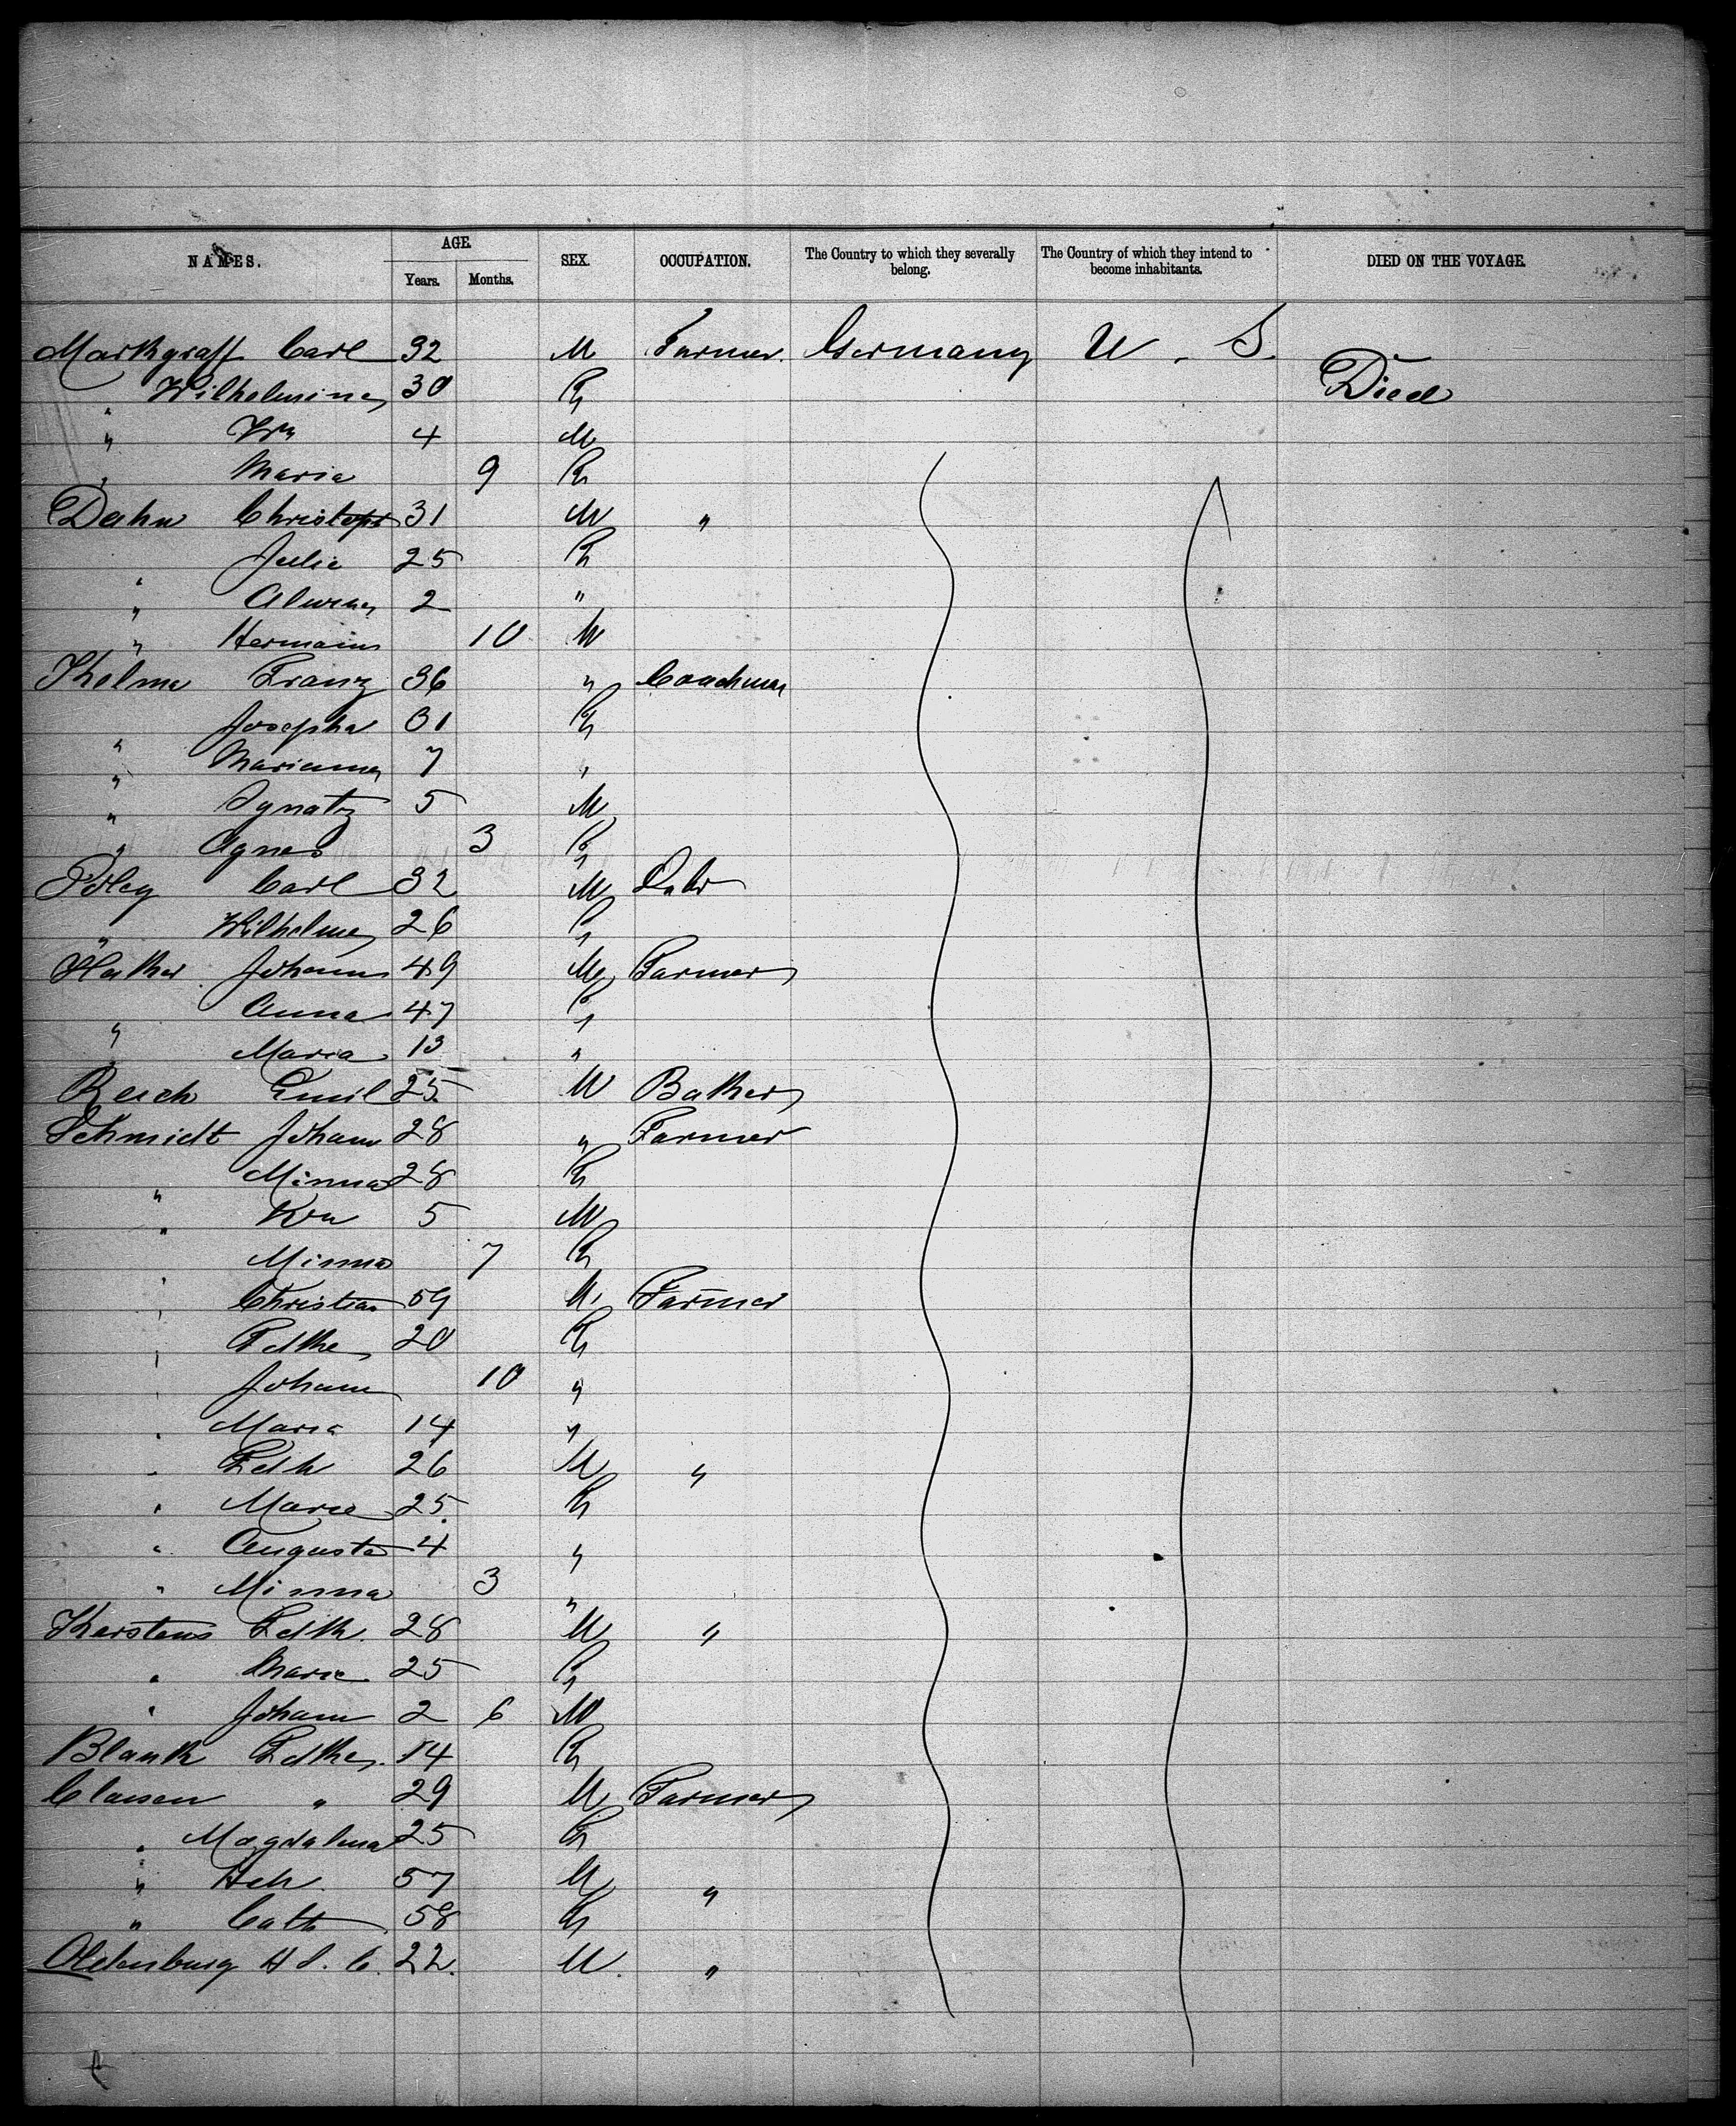 NAMES. AGE. Years. Months. SEX. OCCUPATION. The Country to which they severally belong. The Country of which they intend to become inhabitants. DIED ON THE VOYAGE.
Markgraff Carl 32 M Farmer. Germany U. S.
" Wilhelmine 30 F Died
" Wm 4 M
" Maria 9 F
Dahn Christoph 31 M "
" Julie 25 F
" Alwine 2 "
" Hermann 10 M
Thelma Franz 36 " Coachman
" Josepha 31 F
" Marianna 7 "
" Ignatz 5 M
" Agnes 3 F
Carl 32 M Labr
" Wilhelme 26 F
Johann 49 M Farmer
" Anna 47 F
" Maria 13 "
Reich Emil 25 M Baker
Schmidt Johann 28 " Farmer
" Minna 28 F
" Wm 5 M
" Minna 7 F
" Christian 59 M Farmer
" Fdke 20 F
" Johann 10 "
" Maria 14 "
" Fdk 26 M "
" Marie 25 F
" Augusta 4 "
" Minna 3 "
Karstens Fdk. 28 M "
" Marie 25 F
" Johann 2 6 M
Blank Fdke. 14 F
Clausen " 29 M Farmer
" Magdalena 25 F
" Hch. 57 M "
" Cath 58 F
Oldenburg H. J. C. 22. M. "